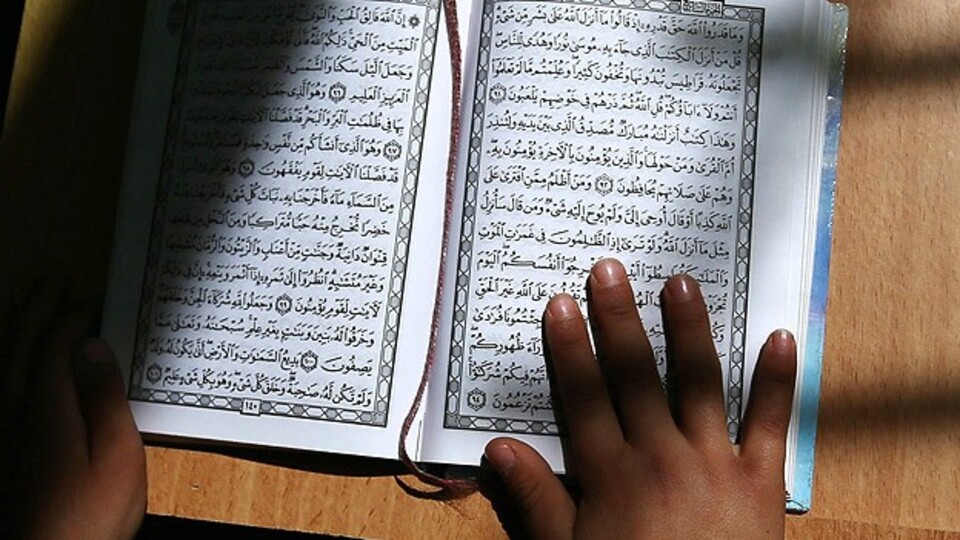 وَمَا قَدَرُوا۟ ٱللَّهَ حَقَّ قَدْرِهِۦٓ إِذْ قَالُوا۟ مَآ أَنزَلَ ٱللَّهُ عَلَىٰ بَشَرٍ مِّن شَىْءٍ
قُلْ مَنْ أَنزَلَ ٱلْكِتَـٰبَ ٱلَّذِى جَآءَ بِهِۦ مُوسَىٰ نُورًا وَهُدًى لِّلنَّاسِ
تَجْعَلُونَهُۥ قَرَاطِيسَ تُبْدُونَهَا وَتُخْفُونَ كَثِيرًا وَعُلِّمْتُم مَّا لَمْ تَعْلَمُوٓا۟
أَنتُمْ وَلَآ ءَابَآؤُكُمْ قُلِ ٱللَّهُ ثُمَّ ذَرْهُمْ فِى خَوْضِهِمْ يَلْعَبُونَ ٩١
وَهَـٰذَا كِتَـٰبٌ أَنزَلْنَـٰهُ مُبَارَكٌ مُّصَدِّقُ ٱلَّذِى بَيْنَ يَدَيْهِ وَلِتُنذِرَ
أُمَّ ٱلْقُرَىٰ وَمَنْ حَوْلَهَا وَٱلَّذِينَ يُؤْمِنُونَ بِٱلْـَٔاخِرَةِ يُؤْمِنُونَ بِهِۦ
وَهُمْ عَلَىٰ صَلَاتِهِمْ يُحَافِظُونَ ٩٢ وَمَنْ أَظْلَمُ مِمَّنِ ٱفْتَرَىٰ عَلَى
ٱللَّهِ كَذِبًا أَوْ قَالَ أُوحِىَ إِلَىَّ وَلَمْ يُوحَ إِلَيْهِ شَىْءٌ وَمَن قَالَ سَأُنزِلُ
مِثْلَ مَآ أَنزَلَ ٱللَّهُ وَلَوْ تَرَىٰٓ إِذِ ٱلظَّـٰلِمُونَ فِى غَمَرَٰتِ ٱلْمَوْتِ
أَنفُسَكُمُ ٱلْيَوْمَ
عَلَى ٱللَّهِ غَيْرَ ٱلْحَقِّ
فُرَٰدَىٰ
ظُهُورِكُمْ
فِيكُمْ شُرَكَـٰٓؤُا۟
تَزْعُمُونَ ٩٤
إِنَّ ٱللَّهَ فَالِقُ ٱلْحَبِّ وَٱلنَّوَىٰ
ٱلْمَيِّتِ مِنَ ٱلْحَىِّ ذَٰلِكُمُ ٱللَّهُ فَأَنَّىٰ تُؤْفَكُونَ
وَجَعَلَ ٱلَّيْلَ سَكَنًا وَٱلشَّمْسَ وَٱلْقَمَرَ
ٱلْعَزِيزِ ٱلْعَلِيمِ ٩٦ وَهُوَ ٱلَّذِى جَعَلَ لَكُمُ ٱلنُّجُومَ لِتَهْتَدُوا۟
بِهَا فِى ظُلُمَـٰتِ ٱلْبَرِّ وَٱلْبَحْرِ قَدْ فَصَّلْنَا ٱلْـَٔايَـٰتِ لِقَوْمٍ يَعْلَمُونَ
٩٧ وَهُوَ ٱلَّذِىٓ أَنشَأَكُم مِّن نَّفْسٍ وَٰحِدَةٍ فَمُسْتَقَرٌّ وَمُسْتَوْدَعٌ
قَدْ فَصَّلْنَا ٱلْـَٔايَـٰتِ لِقَوْمٍ يَفْقَهُونَ ٩٨ وَهُوَ ٱلَّذِىٓ أَنزَلَ
مِنَ ٱلسَّمَآءِ مَآءً فَأَخْرَجْنَا بِهِۦ نَبَاتَ كُلِّ شَىْءٍ فَأَخْرَجْنَا مِنْهُ
خَضِرًا نُّخْرِجُ مِنْهُ حَبًّا مُّتَرَاكِبًا وَمِنَ ٱلنَّخْلِ مِن طَلْعِهَا
قِنْوَانٌ دَانِيَةٌ وَجَنَّـٰتٍ مِّنْ أَعْنَابٍ وَٱلزَّيْتُونَ وَٱلرُّمَّانَ مُشْتَبِهًا
وَغَيْرَ مُتَشَـٰبِهٍ ٱنظُرُوٓا۟ إِلَىٰ ثَمَرِهِۦٓ إِذَآ أَثْمَرَ وَيَنْعِهِۦٓ إِنَّ فِى ذَٰلِكُمْ
لَـَٔايَـٰتٍ لِّقَوْمٍ يُؤْمِنُونَ ٩٩ وَجَعَلُوا۟ لِلَّهِ شُرَكَآءَ ٱلْجِنَّ وَخَلَقَهُمْ
وَخَرَقُوا۟ لَهُۥ بَنِينَ وَبَنَـٰتٍ بِغَيْرِ عِلْمٍ سُبْحَـٰنَهُۥ وَتَعَـٰلَىٰ عَمَّا
يَصِفُونَ ١٠٠ بَدِيعُ ٱلسَّمَـٰوَٰتِ وَٱلْأَرْضِ أَنَّىٰ يَكُونُ لَهُۥ وَلَدٌ
وَلَمْ تَكُن لَّهُۥ صَـٰحِبَةٌ وَخَلَقَ كُلَّ شَىْءٍ وَهُوَ بِكُلِّ شَىْءٍ عَلِيمٌ ١٠١
١٤٠